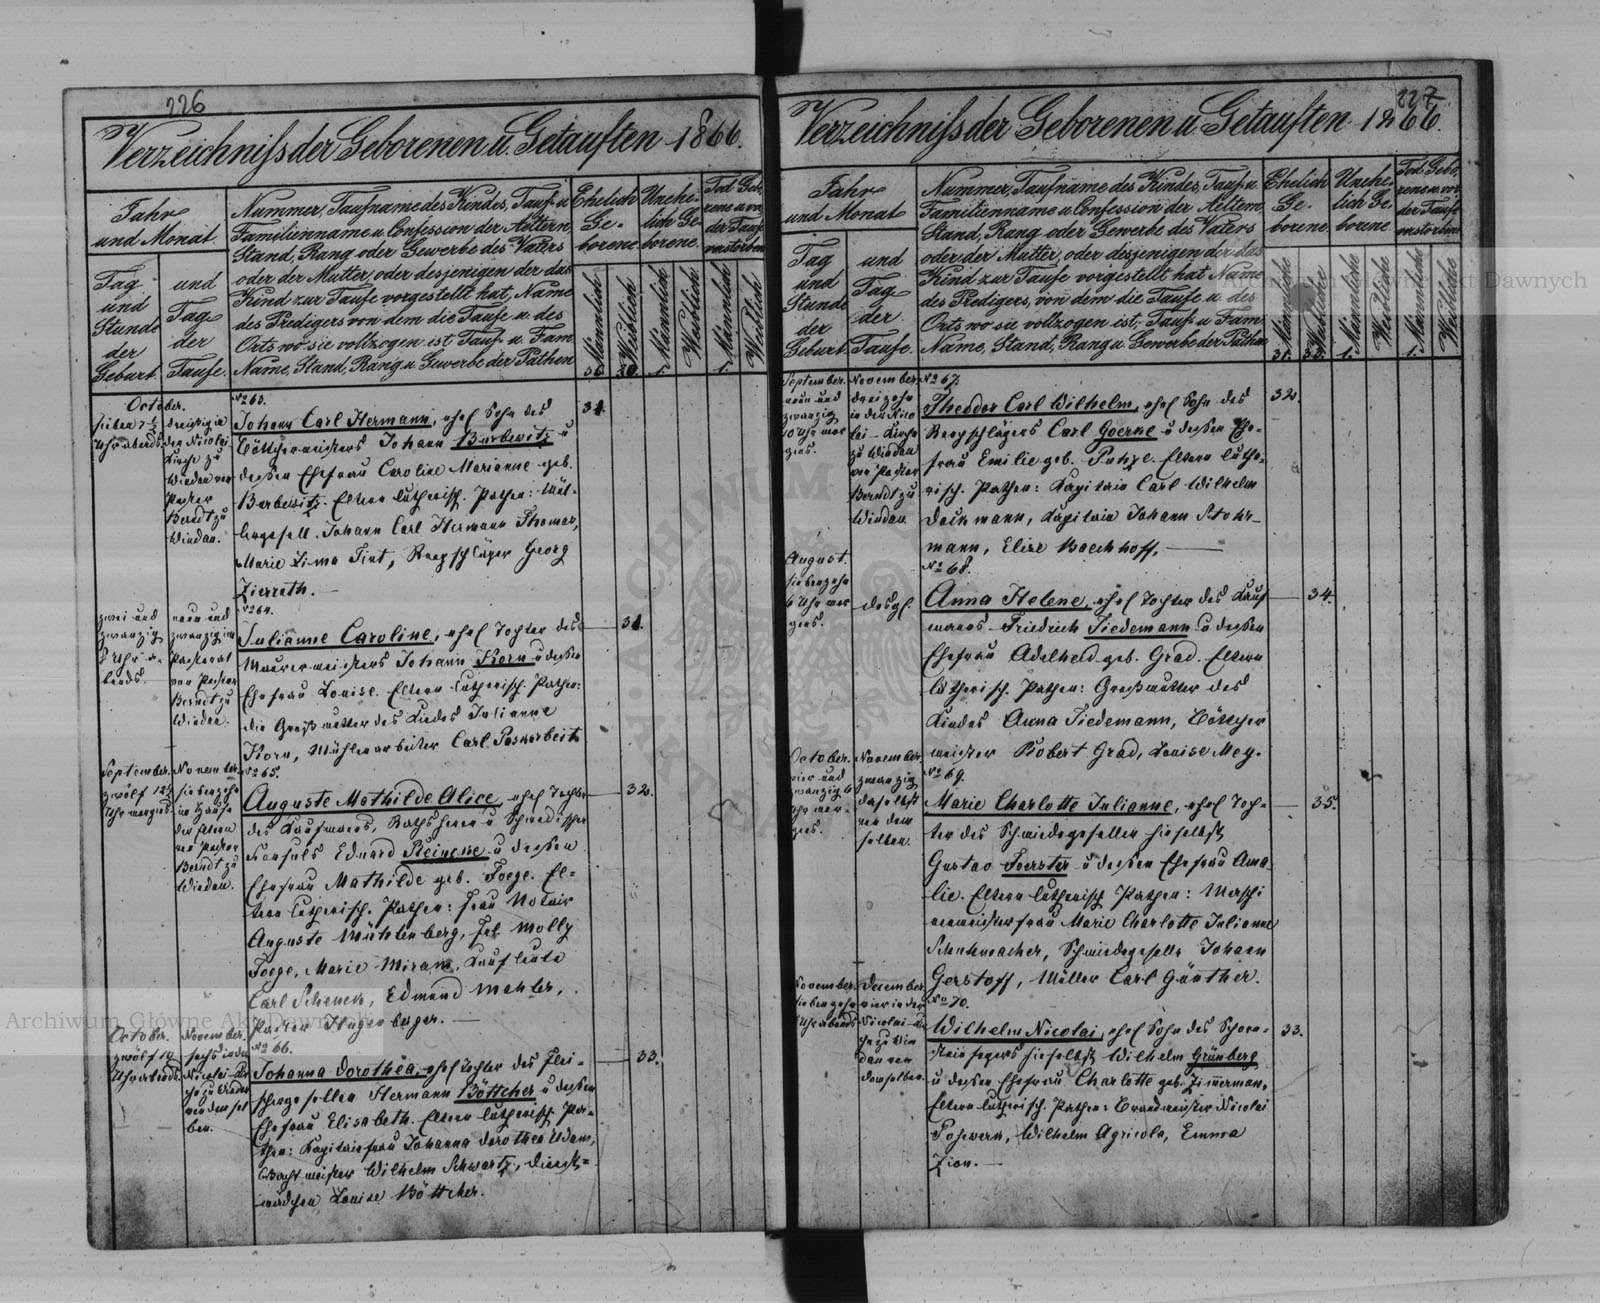 226
Verzeichniſs der Geborenen u. Getauften 1866.
Jahr
und Monat.
Tag
und
Stunde
der
Geburt.
und
Tag
der
Taufe.
Nummer, Taufname des Kindes, Tauf- u.
Familienname u. Confession der Aeltern,
Stand, Rang oder Gewerbe des Vaters
oder der Mutter, oder desjenigen der das
Kind zur Taufe vorgestellt hat, Name
des Predigers von dem die Taufe u. des
Orts wo sie vollzogen ist, Tauf- u. Fam.
Name, Stand, Rang u. Gewerbe der Pathen
Ehelich
Ge-
borene.
Unehe-
lich Ge-
borene.
Tod Gebo-
rene u. vor
der Taufe
verstorbene
Männlich
Weiblich
Männlich
Weiblich
Männlich
Weiblich
30. 1. 1.
October.
sieben 7½
Uhr abends
dreißig in
der Nicolai
Kirche zu
Windau von
Pastor
Berndt zu
Windau.
No 63.
Johann Carl Hermann, ehel Sohn des
Böttchermeisters Johann
dessen Ehefrau Caroline Marianne geb.
Eltern lutherisch. Pathen: Mül-
lergesell. Johann Carl Hermann Thomas,
Marie Lina Tint, Reepschläger Georg
Zierrath. —
31.
zwei und
zwanzig
Uhr a-
bends.
neun und
zwanzig im
Pastorat
von Pastor
Berndt zu
Windau.
No 64.
Julianne Caroline, ehel Tochter des
Maurermeisters Johann Korn u dessen
Ehefrau Louise. Eltern lutherisch. Pathen:
die Großmutter des Kindes Julianne
Korn, Mühlenarbeiter Carl
31.
September.
zwölf 12½
Uhr morgens
November.
siebenzehn
im Hause
der Eltern
von Pastor
Berndt zu
Windau.
No 65.
Auguste Mathilde Alice, ehel Tochter
des Kaufmanns, Rathsherrn u Schwedischen
Konsuls Eduard u dessen
Ehefrau Mathilde geb. Foege. El-
tern lutherisch. Pathen: Frau Notair
Auguste Mühlenberg, Frl Molly
Foege, Marie Kaufleute
Carl Schenck, Edmund Mahler,
Pastor Hugenberger. —
32.
October.
zwölf 10
Uhr abends
November.
sechs in der
Nicolai-Kir-
che zu Windau
von demsel-
ben.
No 66.
Johanna Dorothea, ehel Tochter des Flei-
schergesellen Hermann Böttcher u dessen
Ehefrau Elisabeth. Eltern lutherisch. Pa-
then: Kapitainfrau Johanna Dorothea Adam,
Wilhelm Schwartz, Dienst-
mädchen Louise Böttcher.
33.
227
Verzeichniſs der Geborenen u. Getauften 1866.
Jahr
und Monat
Tag
und
Stunde
der
Geburt.
und
Tag
der
Taufe.
Nummer, Taufname des Kindes, Tauf- u.
Familienname u. Confession der Aeltern,
Stand, Rang oder Gewerbe des Vaters
oder der Mutter, oder desjenigen der das
Kind zur Taufe vorgestellt hat, Name
des Predigers, von dem die Taufe u. des
Orts wo sie vollzogen ist, Tauf- u. Fam.
Name, Stand, Rang u. Gewerbe der Pathen
Ehelich
Ge-
borene.
Unehe-
lich Ge-
borene.
Tod Gebo-
rene u. vor
der Taufe
verstorbene
Männliche
Weibliche
Männliche
Weibliche
Männliche
Weibliche
31. 33. 1. 1.
September.
neun und
zwanzig
10 Uhr mor-
gens.
November.
dreizehn
in der Nico-
lai-Kirche
zu Windau
von Pastor
Berndt zu
Windau
No 67.
Theodor Carl Wilhelm, ehel Sohn des
Reepschlägers Carl Goerke u dessen Ehe-
frau Emilie geb. Eltern luthe-
risch. Pathen: Kapitain Carl Wilhelm
Deckmann, Kapitain Johann Stohr-
mann, Elise —
32.
August.
siebenzehn
6 Uhr mor-
gens.
desgl.
No 68.
Anna Helene, ehel Tochter des Kauf-
manns Friedrich Tiedemann u dessen
Ehefrau Adelheid geb. Grad. Eltern
lutherisch. Pathen: Großmutter des
Kindes Anna Tiedemann, Böttcher
meister Robert Grad, Louise Mey.
34.
October.
vier und
zwanzig 6
Uhr mor-
gens.
November.
zwanzig
daselbst
von dem-
selben.
No 69.
Marie Charlotte Julianne, ehel Toch-
ter des Schmiedegesellen hieselbst
Gustav Foerster u dessen Ehefrau Ama-
lie. Eltern lutherisch Pathen: Maschi-
nenmeisterfrau Marie Charlotte Julianne
Schuhmacher, Schmiedegeselle Johann
Gerstoff, Müller Carl Günther.
35.
November.
siebenzehn
Uhr abends
December.
vier in der
Nicolai-Kir-
che zu Win-
dau von
demselben.
No 70.
Wilhelm Nicolai, ehel Sohn des Schorn-
steinfegers hieselbst Wilhelm Grünberg
u dessen Ehefrau Charlotte geb. Zimmerman.
Eltern lutherisch. Pathen: Brandmeister Nicolai
Wilhelm Agricola, Emma
Zion. —
33.
Archiwum Główne Akt Dawnych
Archiwum Główne Akt Dawnych